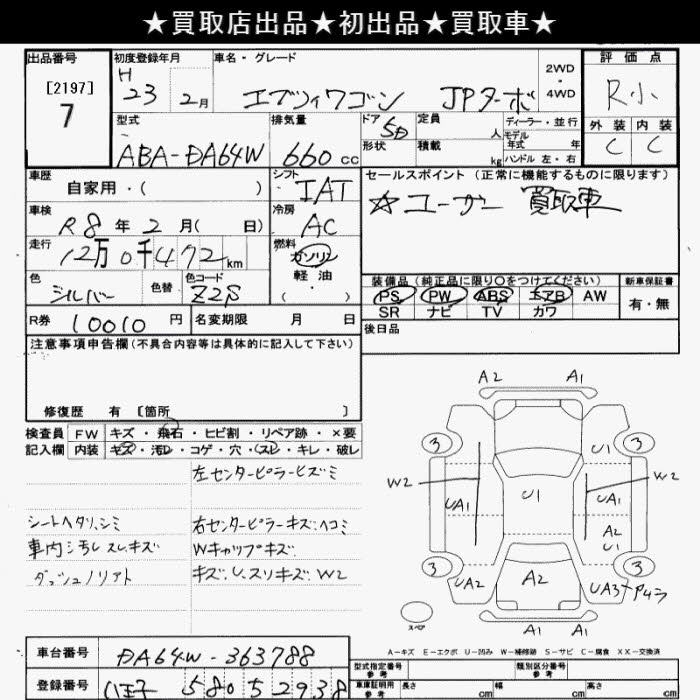 ★買取店出品★初出品★買取車★
出品番号
[2197]
7
初度登録年月
H 23 2月
車名・グレード
エブリィワゴン JPターボ
2WD・4WD
評価点
R小
外装 内装
C C
型式
ABA-DA64W
排気量
660cc
ドア 5D
形状
定員 人
積載 kg
ディーラー・並行
モデル年式 年
ハンドル 左・右
車歴
自家用・( )
シフト
IAT
セールスポイント (正常に機能するものに限ります)
☆ユーザー 買取車
車検
R8年2月( 日)
冷房
AC
走行
12万0千472km
燃料
ガソリン
軽油・
( )
色
シルバー
色替
色コード
Z2S
装備品 (純正品に限り○をつけてください)
PS PW ABS エアB AW
SR ナビ TV カワ
新車保証書
有・無
R券 10010円
名変期限 月 日
後日品
注意事項申告欄(不具合内容等は具体的に記入して下さい)
修復歴 有 [箇所 ]
検査員記入欄
FW キズ・飛石・ヒビ割・リペア跡・×要
内装 キズ・汚レ・コゲ・穴・スレ・キレ・破レ
左センターピラーヒズミ
シートヘタリ、シミ
右センターピラーキズ、ヘコミ
車内シ汚レスレキズ
Wキャップキズ
ダッシュノリアト
キズ、U、スリキズ、W2
A2 A1
3 3
U1
W2 W2
UA1 U1 UA1
A2
U1
3 3
UA2 A2 UA3 P4ラ
スペア
A1 A1
A-キズ E-エクボ U-凹み W-補修跡 S-サビ C-腐食 XX-交換済
車台番号
DA64W-363788
登録番号
八王子 580 52938
型式指定番号 参考
類別区分番号 参考
車庫証明用 参考
長さ cm 幅 cm 高さ cm